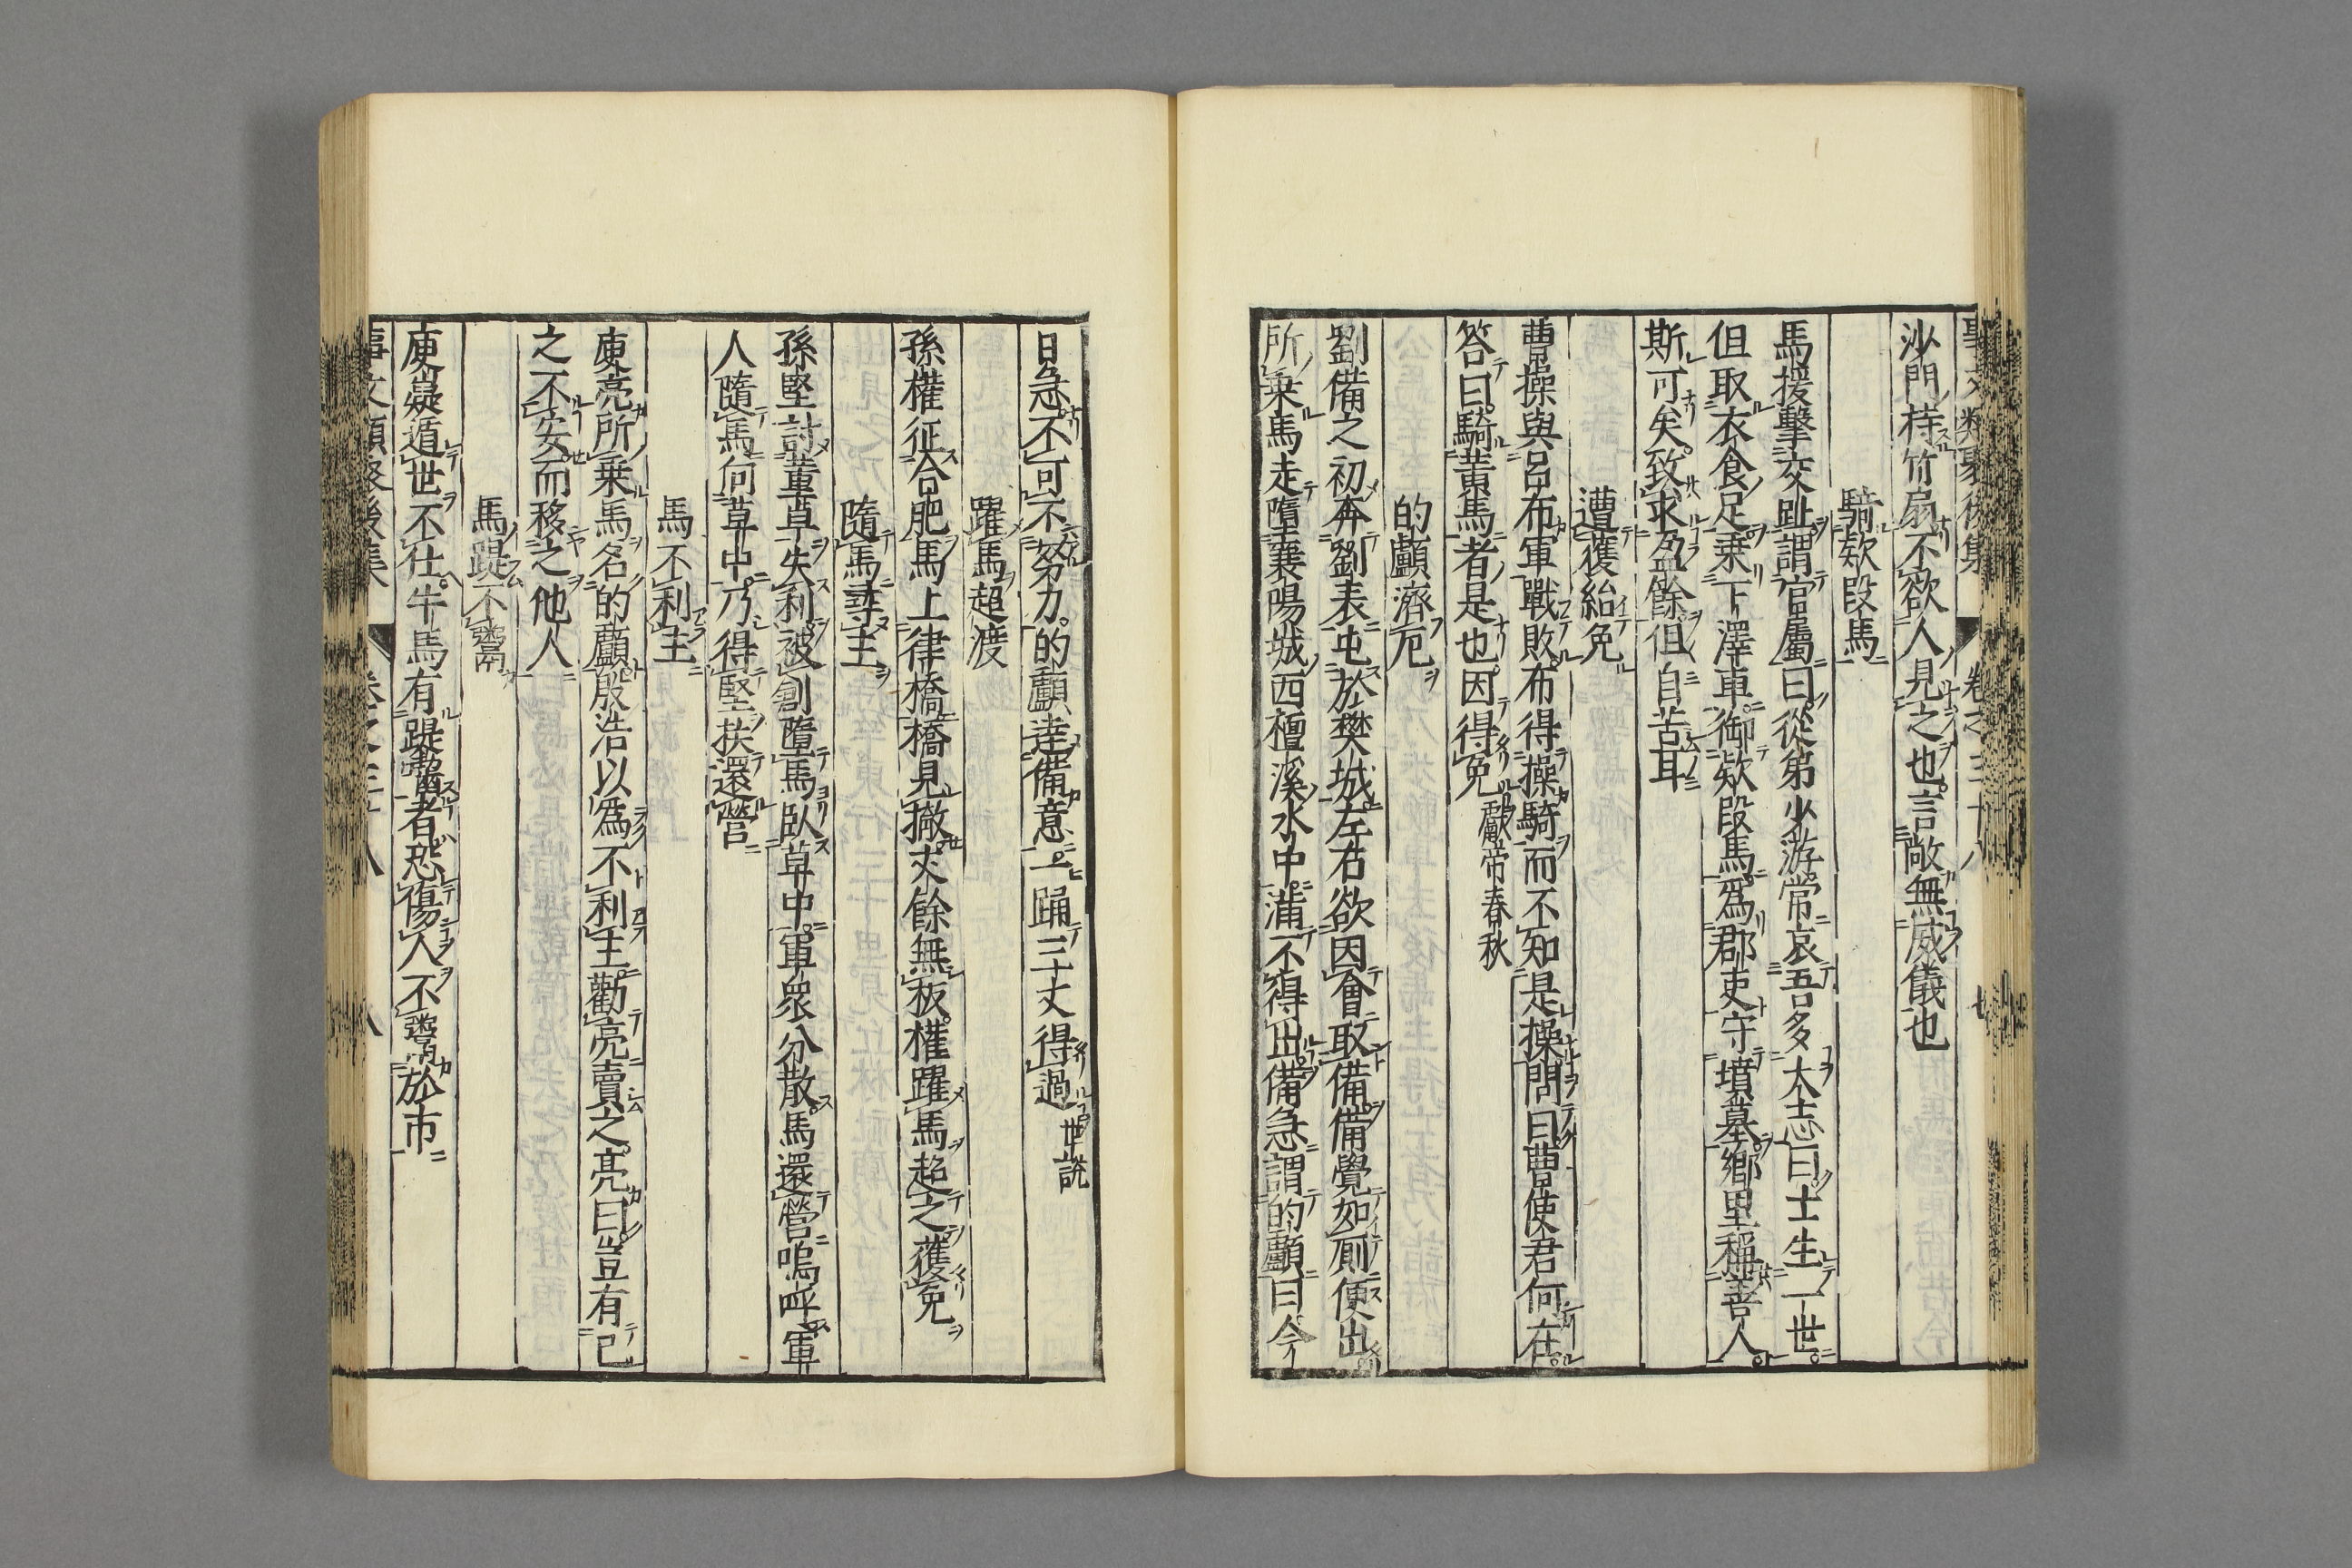 事文類聚後集 卷之三十八 七
沙門持竹扇不欲人見之也言敞無威儀也
騎欵段馬
馬援擊交趾謂官屬曰從弟少游常哀吾多大志曰士生一世
但取衣食足乗下澤車御欵段馬爲郡吏守墳墓鄉里稱善人
斯可矣致求盈餘但自苦耳
遭獲紿免
曹操與呂布軍戰敗布得操騎而不知是操問曰曹使君何在
答曰騎黃馬者是也因得免 獻帝春秋
的顱濟厄
劉備之初奔劉表屯於樊城左右欲因會取備備覺如厠便出
所乗馬走墮襄陽城西檀溪水中溺不得出備急謂的顱曰今
日急不可不努力的顱達備意一踊三丈得過 世說
躍馬超渡
孫權征合肥馬上律橋橋見撤丈餘無板權躍馬超之獲免
隨馬尋主
孫堅討董卓失利被創墮馬臥草中軍衆分散馬還營嗚呼軍
人隨馬向草中乃得堅扶還營
馬不利主
庾亮所乗馬名的顱殷浩以爲不利主勸亮賣之亮曰豈有己
之不安而移之他人
馬踶不鬻
庾嶷遁世不仕牛馬有踶齧者恐傷人不鬻於市
事文類聚後集 卷之三十八 八